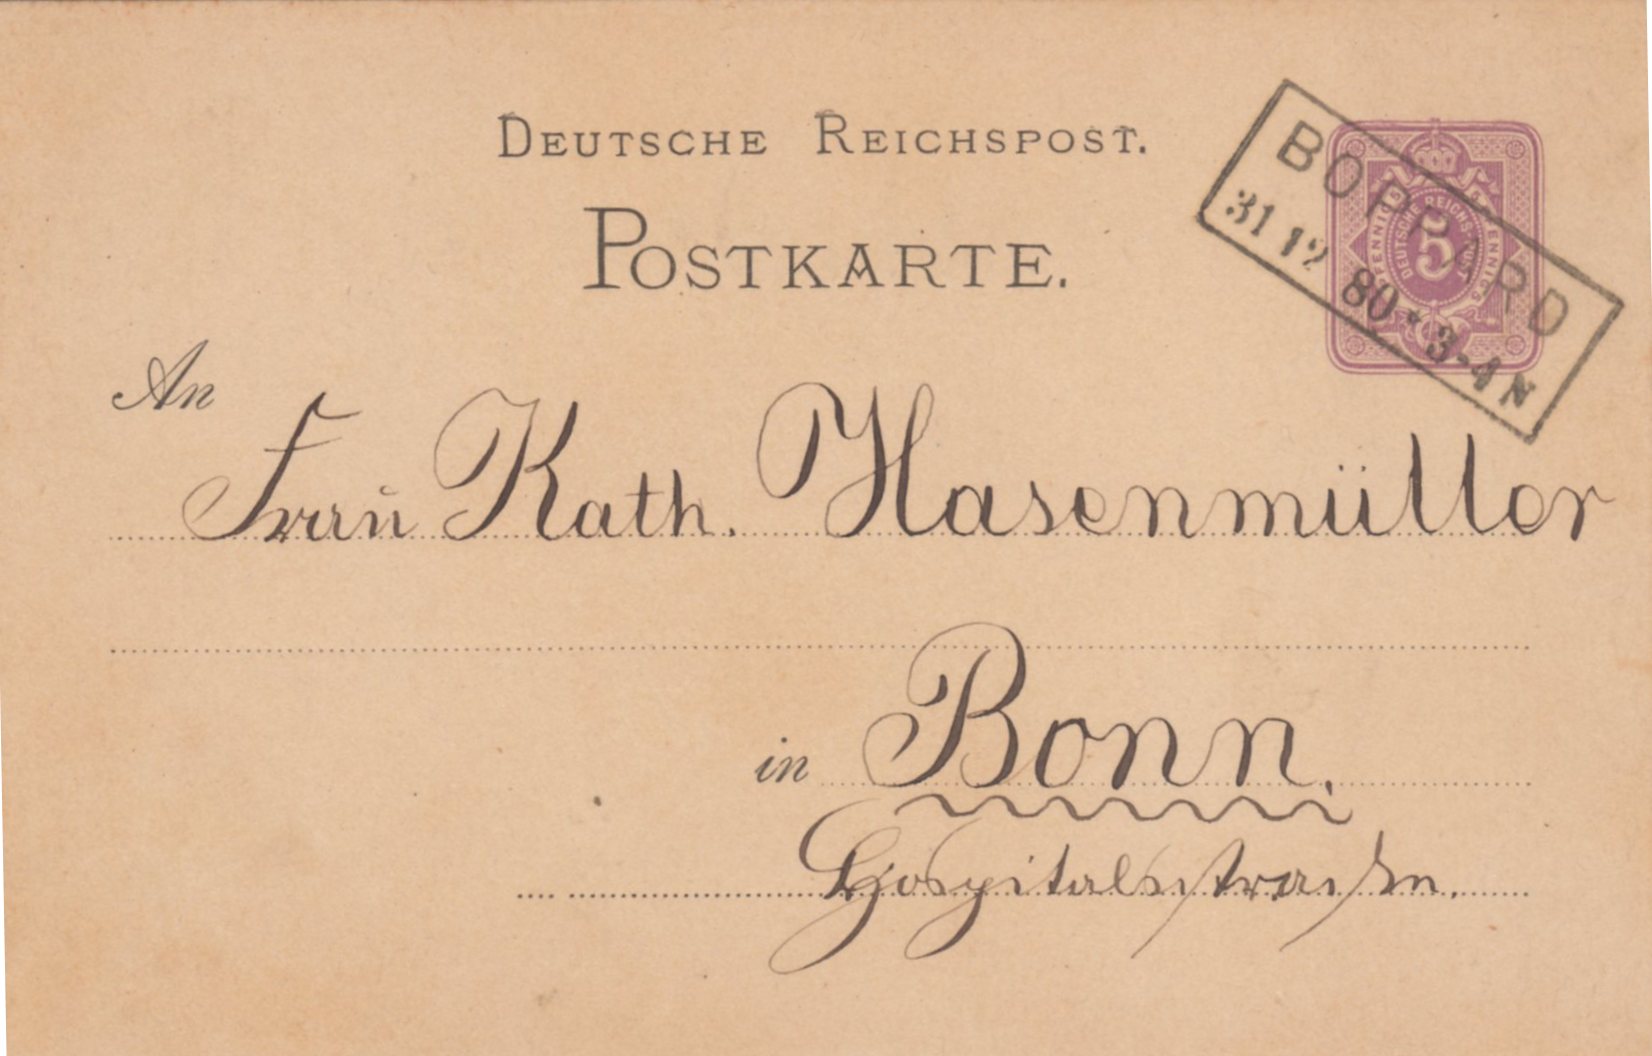 DEUTSCHE REICHSPOST.
POSTKARTE.
BOPPARD
31 12 80 * 3-4 N
PFENNIG 5 PFENNIG
DEUTSCHE REICHS-POST
5
An
Frau Kath. Hasenmüller
in Bonn.
Hospitalstraße.